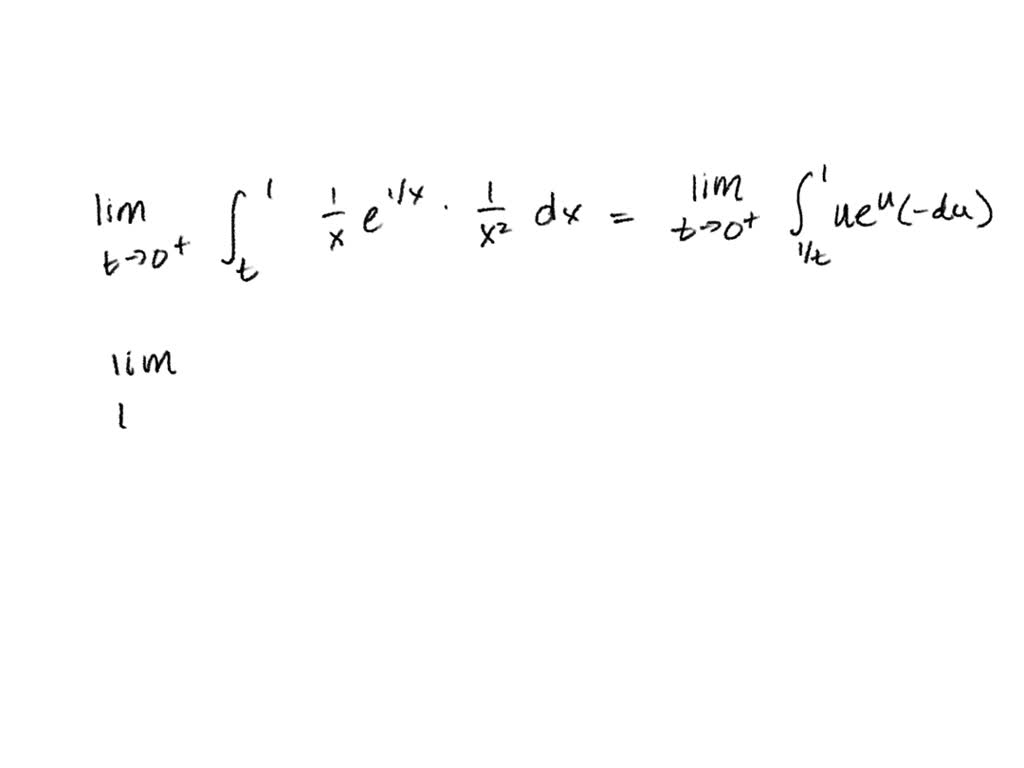 lim t→0⁺ ∫_t^1 1/x e^{1/x} · 1/x² dx = lim t→0⁺ ∫_{1/t}^1 ue^u(-du)
lim
l